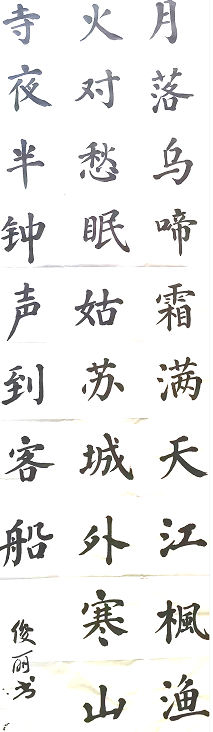 月落乌啼霜满天江枫渔
火对愁眠姑苏城外寒山
寺夜半钟声到客船
俊丽书